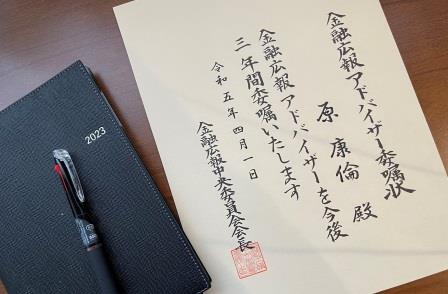 金融広報アドバイザー委嘱状
原 康倫 殿
金融広報アドバイザーを今後
三年間委嘱いたします
令和五年四月一日
金融広報中央委員会会長
2023